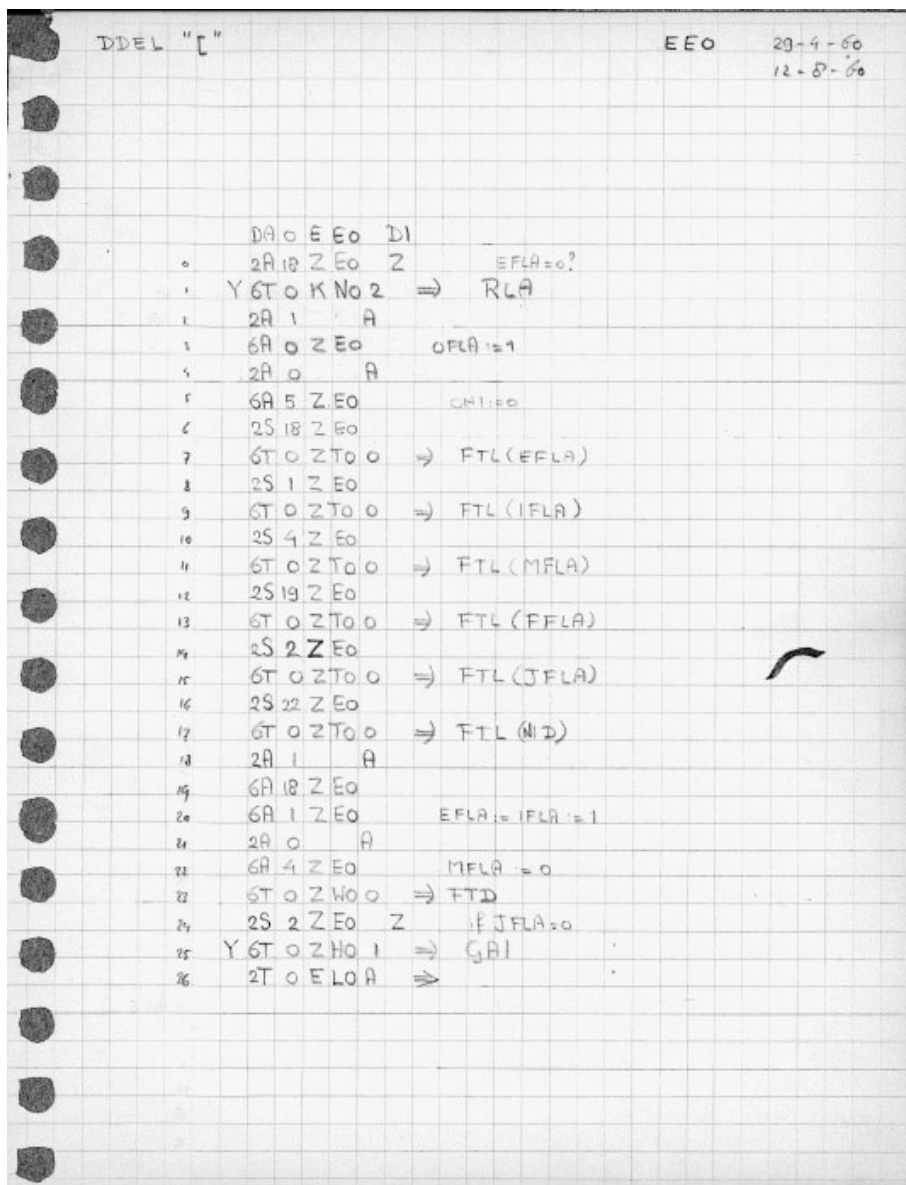 DDEL "[" EE0 29-4-60
12-8-60
DA 0 E E0 DI
0 2A 18 Z E0 Z EFLA=0?
1 Y 6T 0 K N0 2 ⇒ RLA
2 2A 1 A
3 6A 0 Z E0 OFLA:=1
4 2A 0 A
5 6A 5 Z E0 OHI:=0
6 2S 18 Z E0
7 6T 0 Z T0 0 ⇒ FTL(EFLA)
8 2S 1 Z E0
9 6T 0 Z T0 0 ⇒ FTL(IFLA)
10 2S 4 Z E0
11 6T 0 Z T0 0 ⇒ FTL(MFLA)
12 2S 19 Z E0
13 6T 0 Z T0 0 ⇒ FTL(FFLA)
14 2S 2 Z E0
15 6T 0 Z T0 0 ⇒ FTL(JFLA)
16 2S 22 Z E0
17 6T 0 Z T0 0 ⇒ FTL(NID)
18 2A 1 A
19 6A 18 Z E0
20 6A 1 Z E0 EFLA:=IFLA:=1
21 2A 0 A
22 6A 4 Z E0 MFLA:=0
23 6T 0 Z W0 0 ⇒ FTD
24 2S 2 Z E0 Z if JFLA=0
25 Y 6T 0 Z H0 1 ⇒ GAI
26 2T 0 E L0 A ⇒